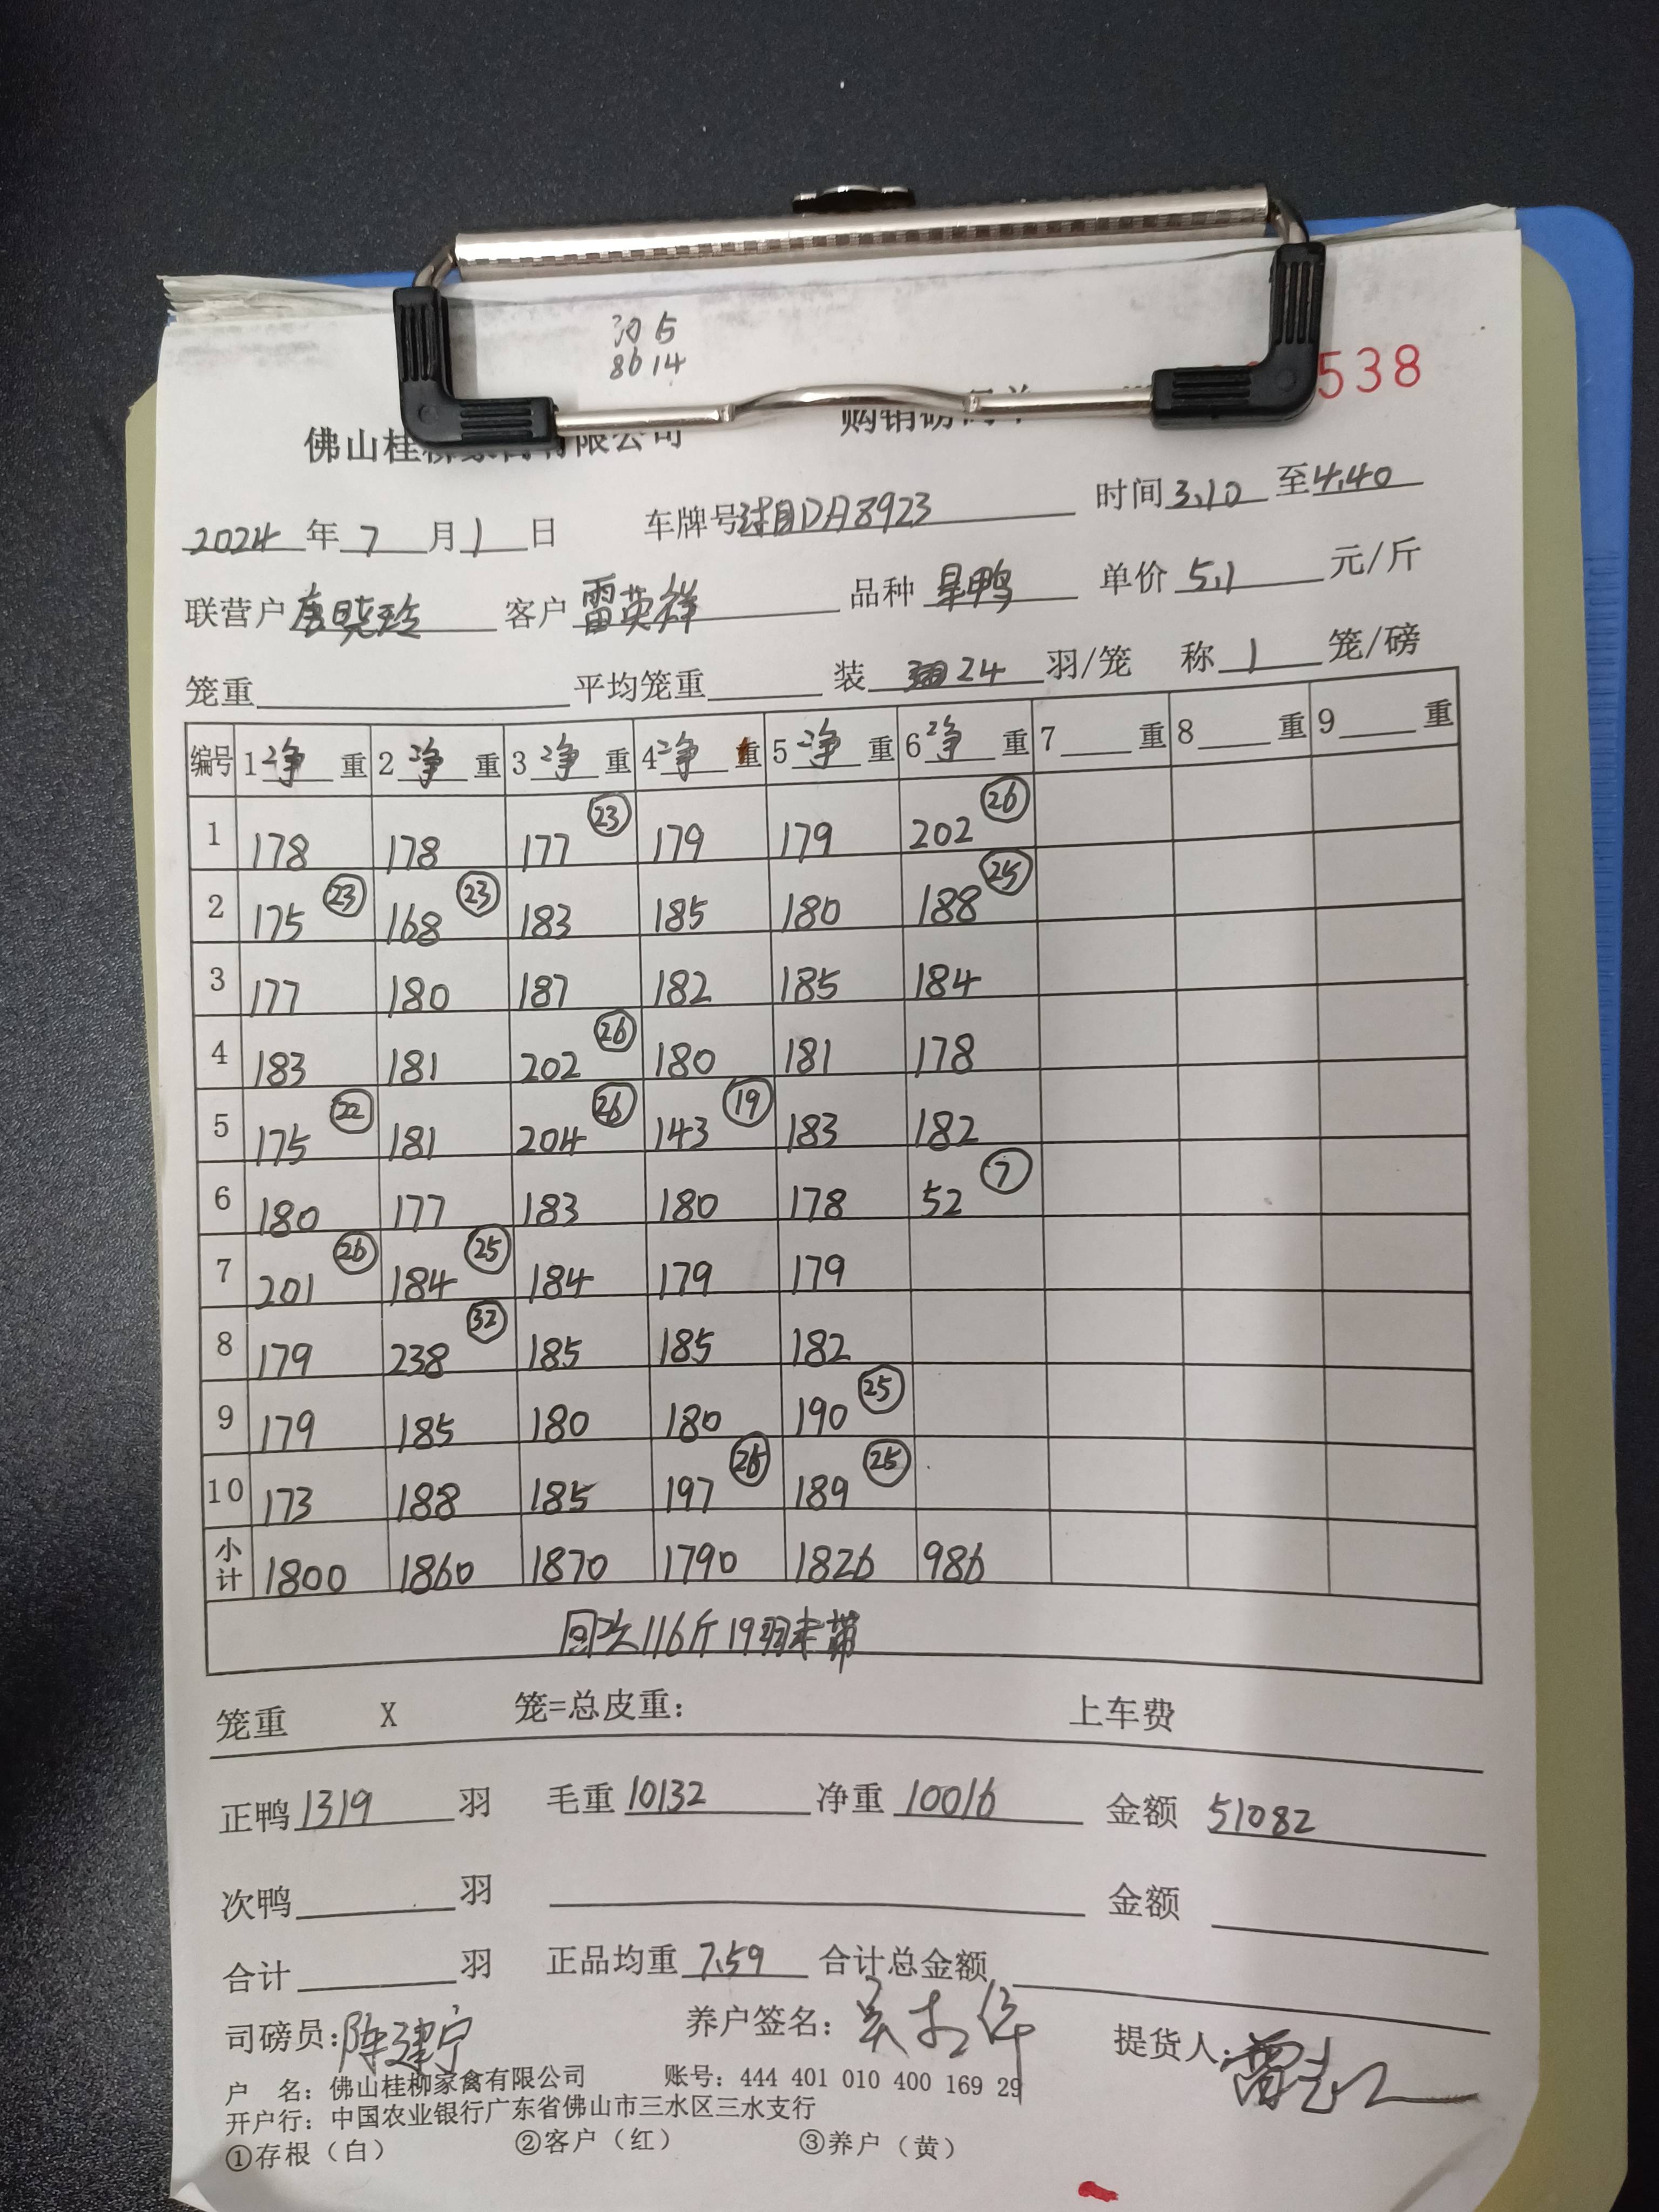 8614
538
佛山桂柳家禽有限公司 购销磅码单
2024年7月1日 车牌号湘DA8923 时间3.10至4.40
联营户唐晓玲 客户雷英祥 品种 单价5.1元/斤
笼重 平均笼重 装24羽/笼 称1笼/磅
编号 1净重 2净重 3净重 4净重 5净重 6净重 7重 8重 9重
1 178 178 177㉓ 179 179 202㉖
2 175㉓ 168㉓ 183 185 180 188㉕
3 177 180 187 182 185 184
4 183 181 202㉖ 180 181 178
5 175㉒ 181 204㉖ 143⑲ 183 182
6 180 177 183 180 178 52⑦
7 201㉖ 184㉕ 184 179 179
8 179 238㉜ 185 185 182
9 179 185 180 180 190㉕
10 173 188 185 197 189㉕
小计 1800 1860 1870 1790 1826 986
回头116斤19羽未带
笼重 X 笼=总皮重: 上车费
正鸭1319羽 毛重10132 净重10016 金额 51082
次鸭 羽 金额
合计 羽 正品均重7.59 合计总金额
司磅员:陈建宁 养户签名: 提货人:
户 名: 佛山桂柳家禽有限公司 账号: 444 401 010 400 169 29
开户行: 中国农业银行广东省佛山市三水区三水支行
①存根（白） ②客户（红） ③养户（黄）